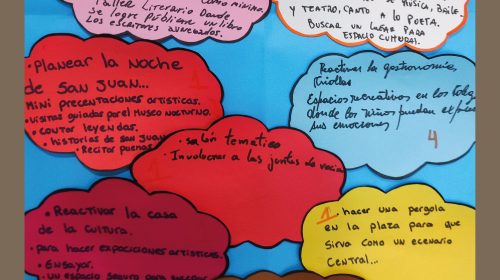 como mínimo.
Taller Literario Donde
se logre Publicar un libro
Los escritores avanzados.
Y TEATRO, CANTO A LO POETA.
BUSCAR UN LUGAR PARA
ESPACIO CULTURAL.
• Planear la noche
de san Juan...
Mini presentaciones artisticas.
• visitas guiadas por el museo nocturno.
• contar leyendas.
• historias de san Juan
• Recitar poemas
1
Reactivar la gastronomía
Criolla
Espacios recreativos en los
donde los niños puedan
sus emociones
4
• salón tematico
• Involucrar a las juntas de vecin
1
• Reactivar la casa
de la cultura.
• para hacer expociciones artisticas.
• Ensayar.
• un espacio seguro para
1. hacer una pergola
en la plaza para que
sirva como un ecenario
central...